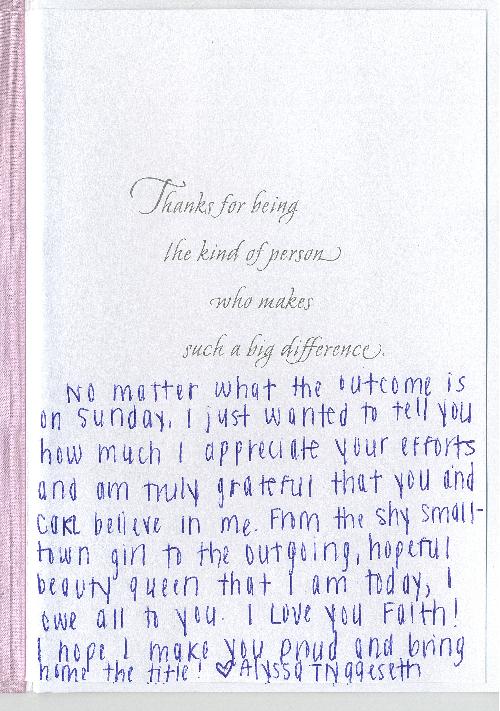 Thanks for being
the kind of person
who makes
such a big difference.
No matter what the outcome is
on Sunday, I just wanted to tell you
how much I appreciate your efforts
and am truly grateful that you and
believe in me. From the shy small-
town girl to the outgoing, hopeful
beauty queen that I am today, I
owe all to you. I Love you Faith!
I hope I make you proud and bring
home the title! ♡ Alyssa